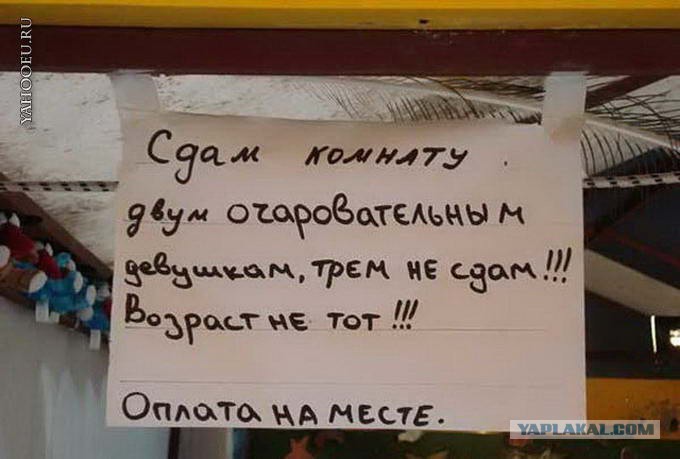 YAHOOEU.RU
Сдам комнату.
двум очаровательным
девушкам, трем не сдам!!!
Возраст не тот!!!
Оплата на месте.
YAPLAKAL.COM